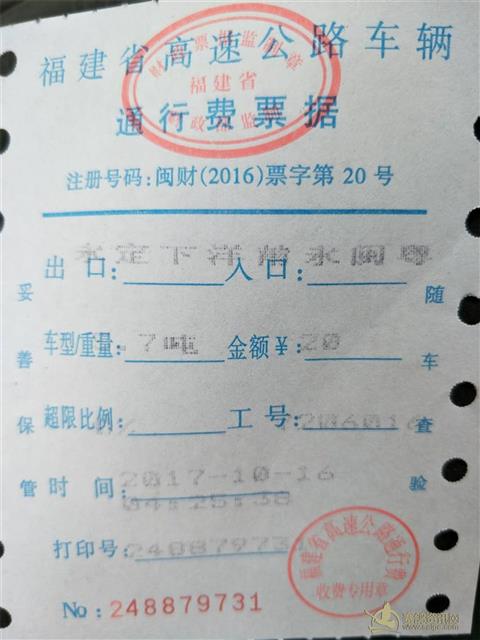 福建省高速公路车辆
通行费票据
福建省
注册号码:闽财(2016)票字第 20 号
永定下洋 永闽粤
出口: 入口:
车型/重量: 7吨 金额¥: 20
超限比例: 工号: 206016
时间: 2017-10-16
04:25:38
打印号: 24887973
No: 248879731
妥善保管
随车查验
福建省高速公路通行费
收费专用章